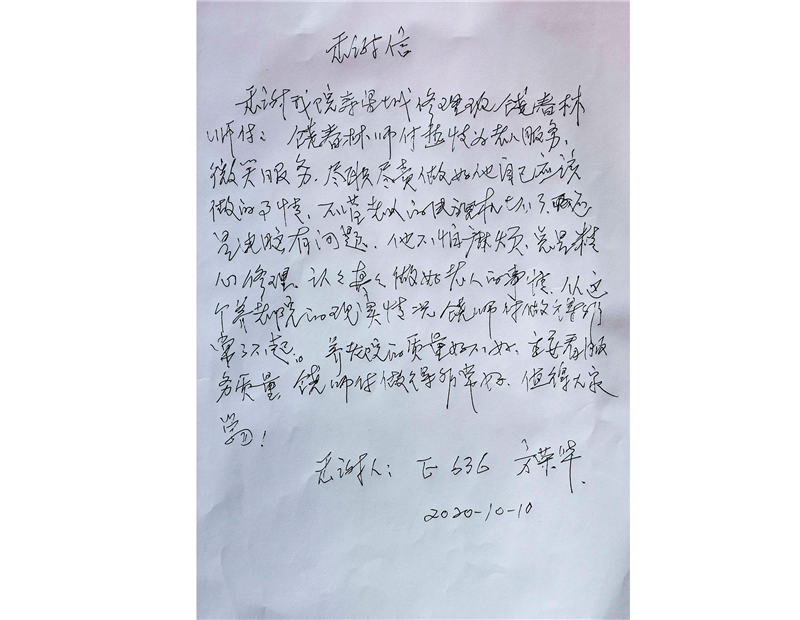 感谢信
感谢我院 修理班饶春林
师付：饶春林师付热忱为老人服务，
微笑服务．尽职尽责做好他自己应该
做的事情，不管老人的电视机 还
是电脑有问题．他不怕麻烦，总是精
心修理．认々真々做好老人的事情．从这
个养老院的现实情况饶师付做得非
常了不起。养老院的质量好不好，主要看服
务质量，饶师付做得非常好．值得大家
学习！
感谢人：E 636 方荣华．
2020-10-10